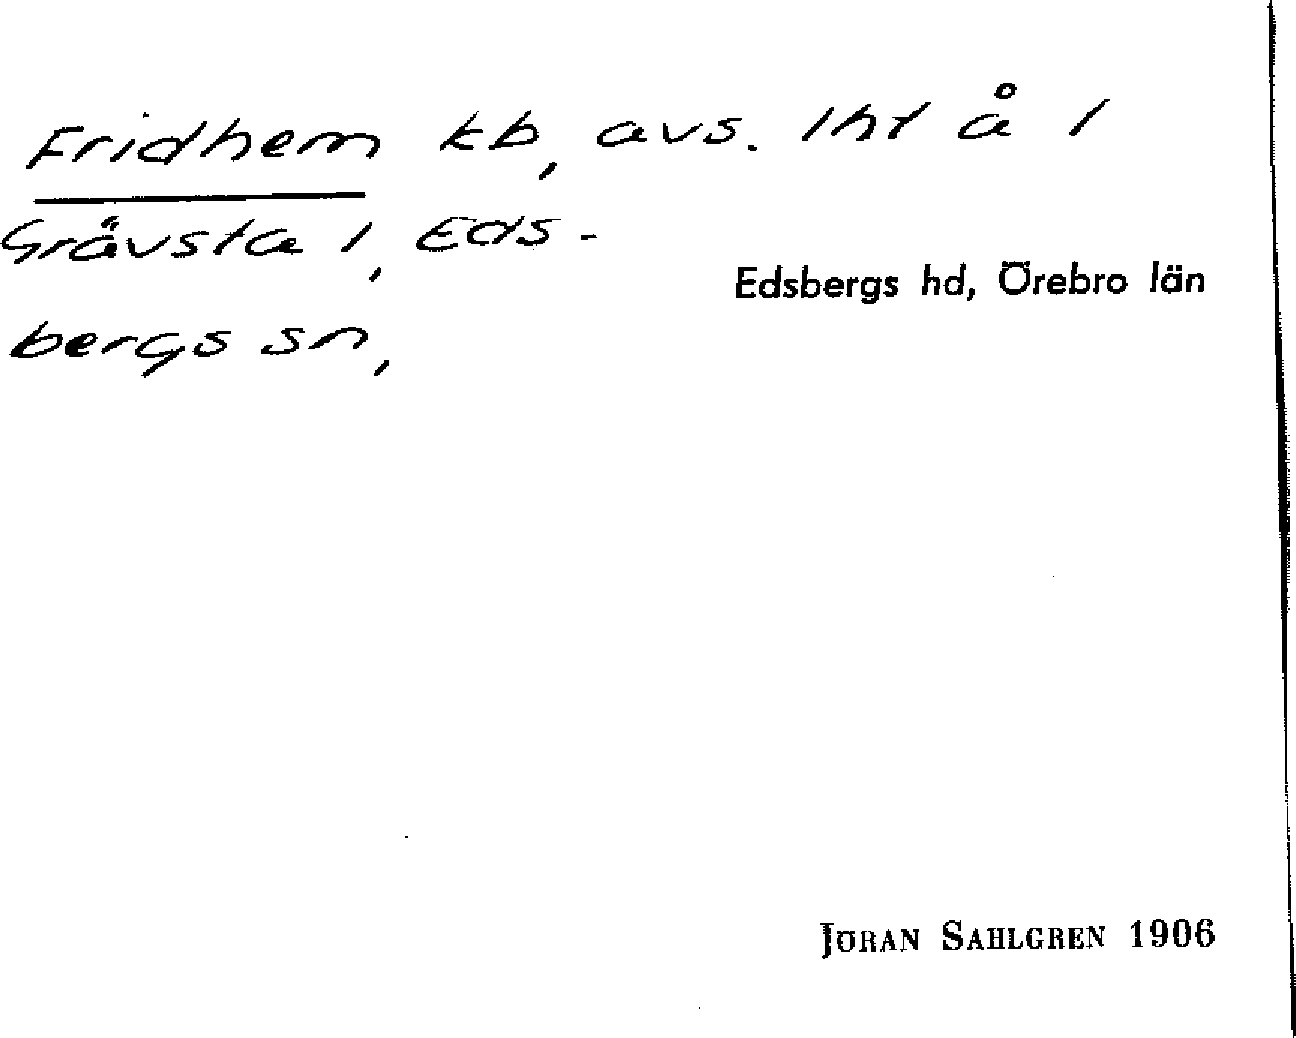 Fridhem kb, avs. lht å 1
Grävsta 1, Eds-
bergs sn,
Edsbergs hd, Örebro län
JÖRAN SAHLGREN 1906